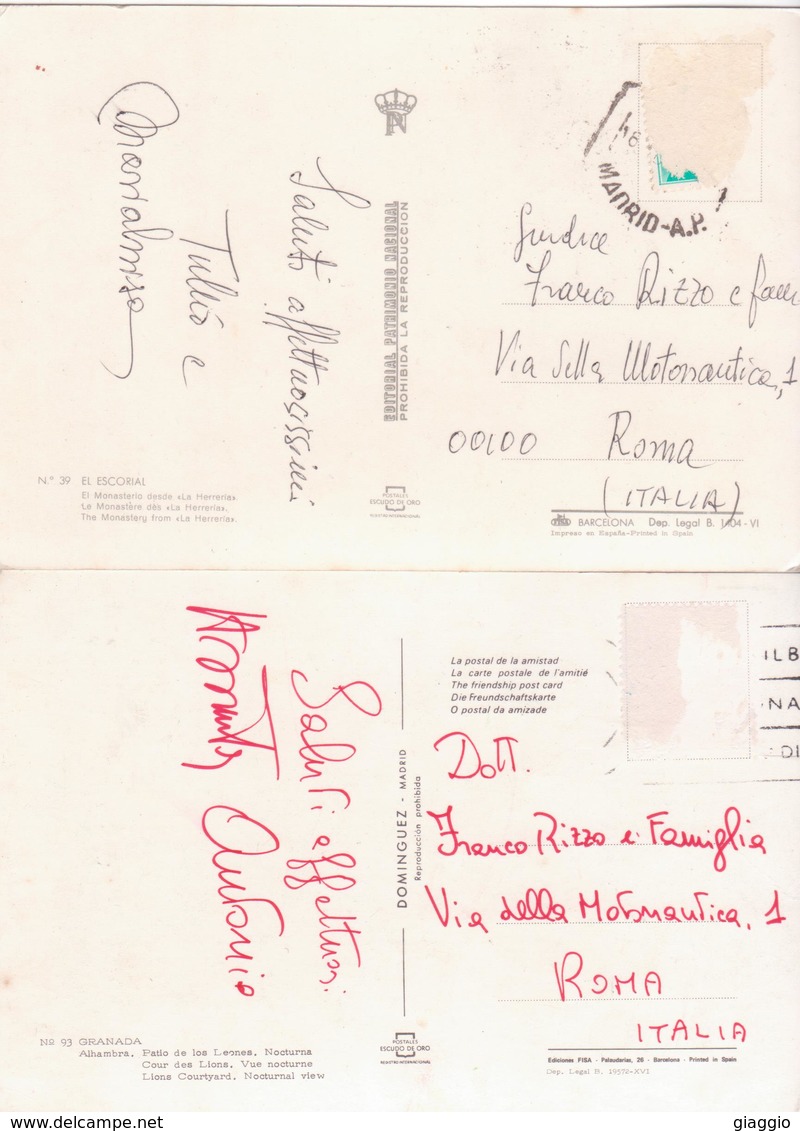 MADRID-A.P.
Saluti affettuosissimi
Tullio e
Marialuisa
EDITORIAL PATRIMONIO NACIONAL
PROHIBIDA LA REPRODUCCION
Giudice
Franco Rizzo e fam
Via della Motonautica, 1
00100 Roma
(ITALIA)
N.° 39 EL ESCORIAL
El Monasterio desde «La Herrería».
Le Monastère dès «La Herrería».
The Monastery from «La Herrería».
POSTALES
ESCUDO DE ORO
REGISTRO INTERNACIONAL
BARCELONA Dep. Legal B. 1404-VI
Impreso en España-Printed in Spain
La postal de la amistad
La carte postale de l'amitié
The friendship post card
Die Freundschaftskarte
O postal da amizade
ILB
NA
DI
Saluti affettuosi
Antonio
DOMINGUEZ - MADRID
Reproducción prohibida
Dott.
Franco Rizzo e Famiglia
Via della Motonautica, 1
ROMA
ITALIA
Nº 93 GRANADA
Alhambra. Patio de los Leones. Nocturna
Cour des Lions. Vue nocturne
Lions Courtyard. Nocturnal view
POSTALES
ESCUDO DE ORO
REGISTRO INTERNACIONAL
Ediciones FISA - Palaudarias, 26 - Barcelona - Printed in Spain
Dep. Legal B. 19572-XVI
giaggio